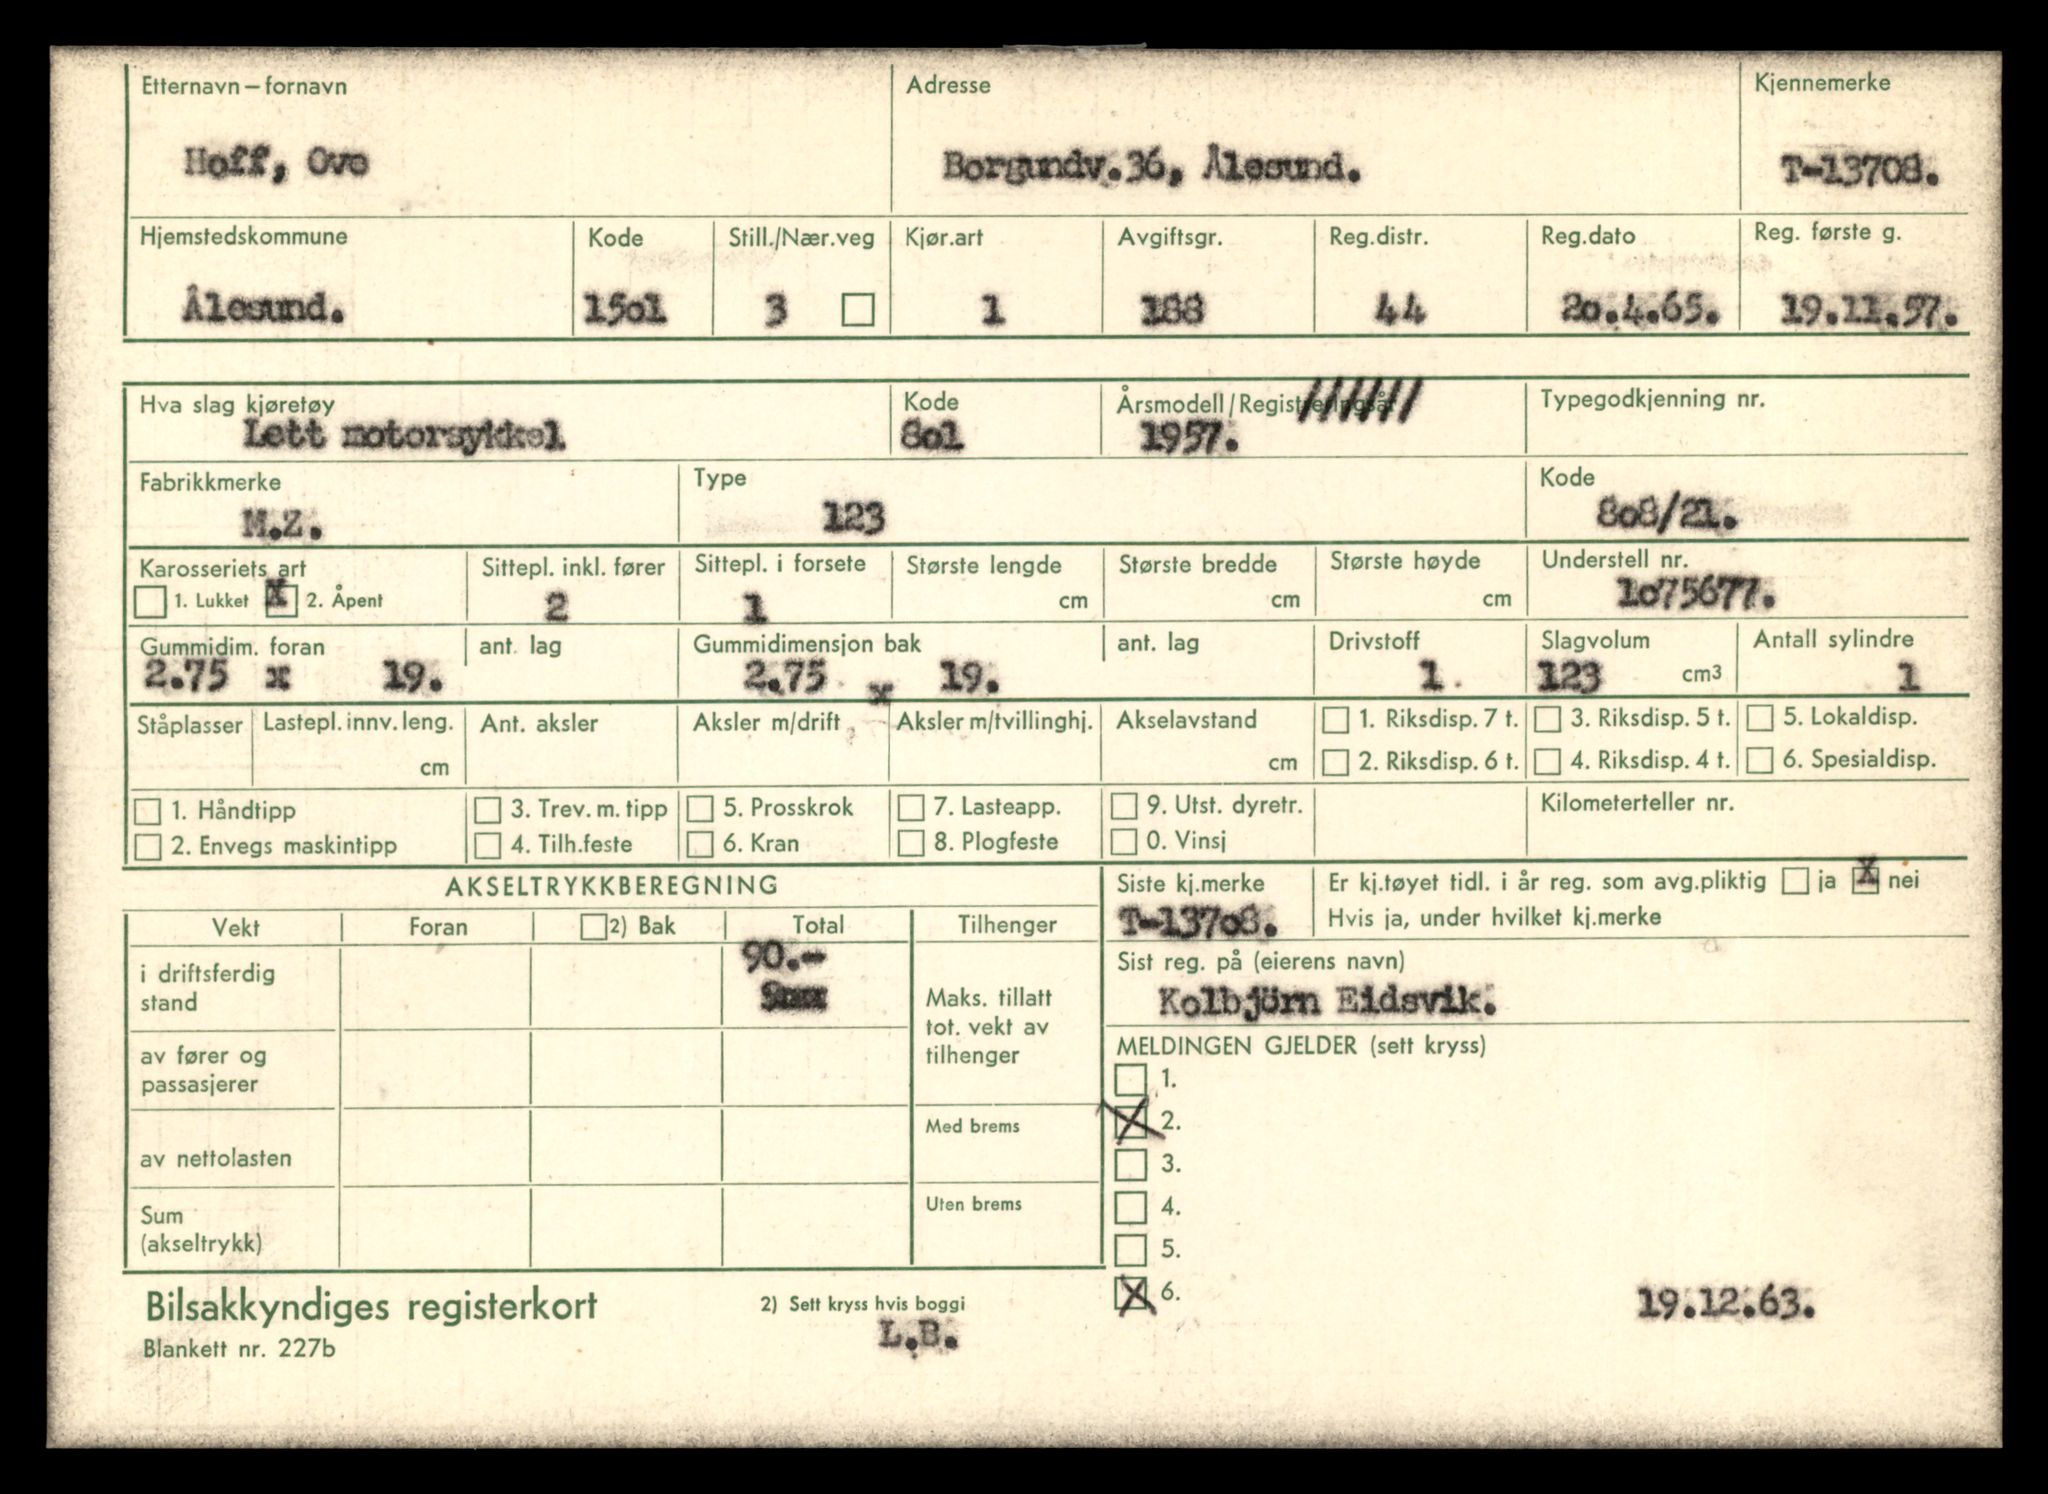 Etternavn – fornavn Adresse Kjennemerke
Hoff, Ove Borgundv.36, Ålesund. T-13708.
Hjemstedskommune Kode Still./Nær.veg Kjør.art Avgiftsgr. Reg.distr. Reg.dato Reg. første g.
Ålesund. 15o1 3 1 188 44 2o.4.65. 19.11.57.
Hva slag kjøretøy Kode Årsmodell/Registreringsår Typegodkjenning nr.
Lett motorsykkel 8o1 1957.
Fabrikkmerke Type Kode
M.Z. 123 8o8/21.
Karosseriets art Sittepl. inkl. fører Sittepl. i forsete Største lengde Største bredde Største høyde Understell nr.
1. Lukket X 2. Åpent 2 1 cm cm cm 1o75677.
Gummidim. foran ant. lag Gummidimensjon bak ant. lag Drivstoff Slagvolum Antall sylindre
2.75 x 19. 2.75 x 19. 1. 123 cm3 1
Ståplasser Lastepl. innv. leng. Ant. aksler Aksler m/drift Aksler m/tvillinghj. Akselavstand 1. Riksdisp. 7 t. 3. Riksdisp. 5 t. 5. Lokaldisp.
cm cm 2. Riksdisp. 6 t. 4. Riksdisp. 4 t. 6. Spesialdisp.
1. Håndtipp 3. Trev. m. tipp 5. Prosskrok 7. Lasteapp. 9. Utst. dyretr. Kilometerteller nr.
2. Envegs maskintipp 4. Tilh.feste 6. Kran 8. Plogfeste 0. Vinsj
AKSELTRYKKBEREGNING Siste kj.merke Er kj.tøyet tidl. i år reg. som avg.pliktig ja X nei
Vekt Foran 2) Bak Total Tilhenger T-137o8. Hvis ja, under hvilket kj.merke
90.-
i driftsferdig Sist reg. på (eierens navn)
stand Maks. tillatt Kolbjörn Eidsvik.
tot. vekt av
av fører og tilhenger MELDINGEN GJELDER (sett kryss)
passasjerer 1.
Med brems X 2.
av nettolasten 3.
Sum Uten brems 4.
(akseltrykk) 5.
X 6. 19.12.63.
Bilsakkyndiges registerkort 2) Sett kryss hvis boggi
Blankett nr. 227b L.B.